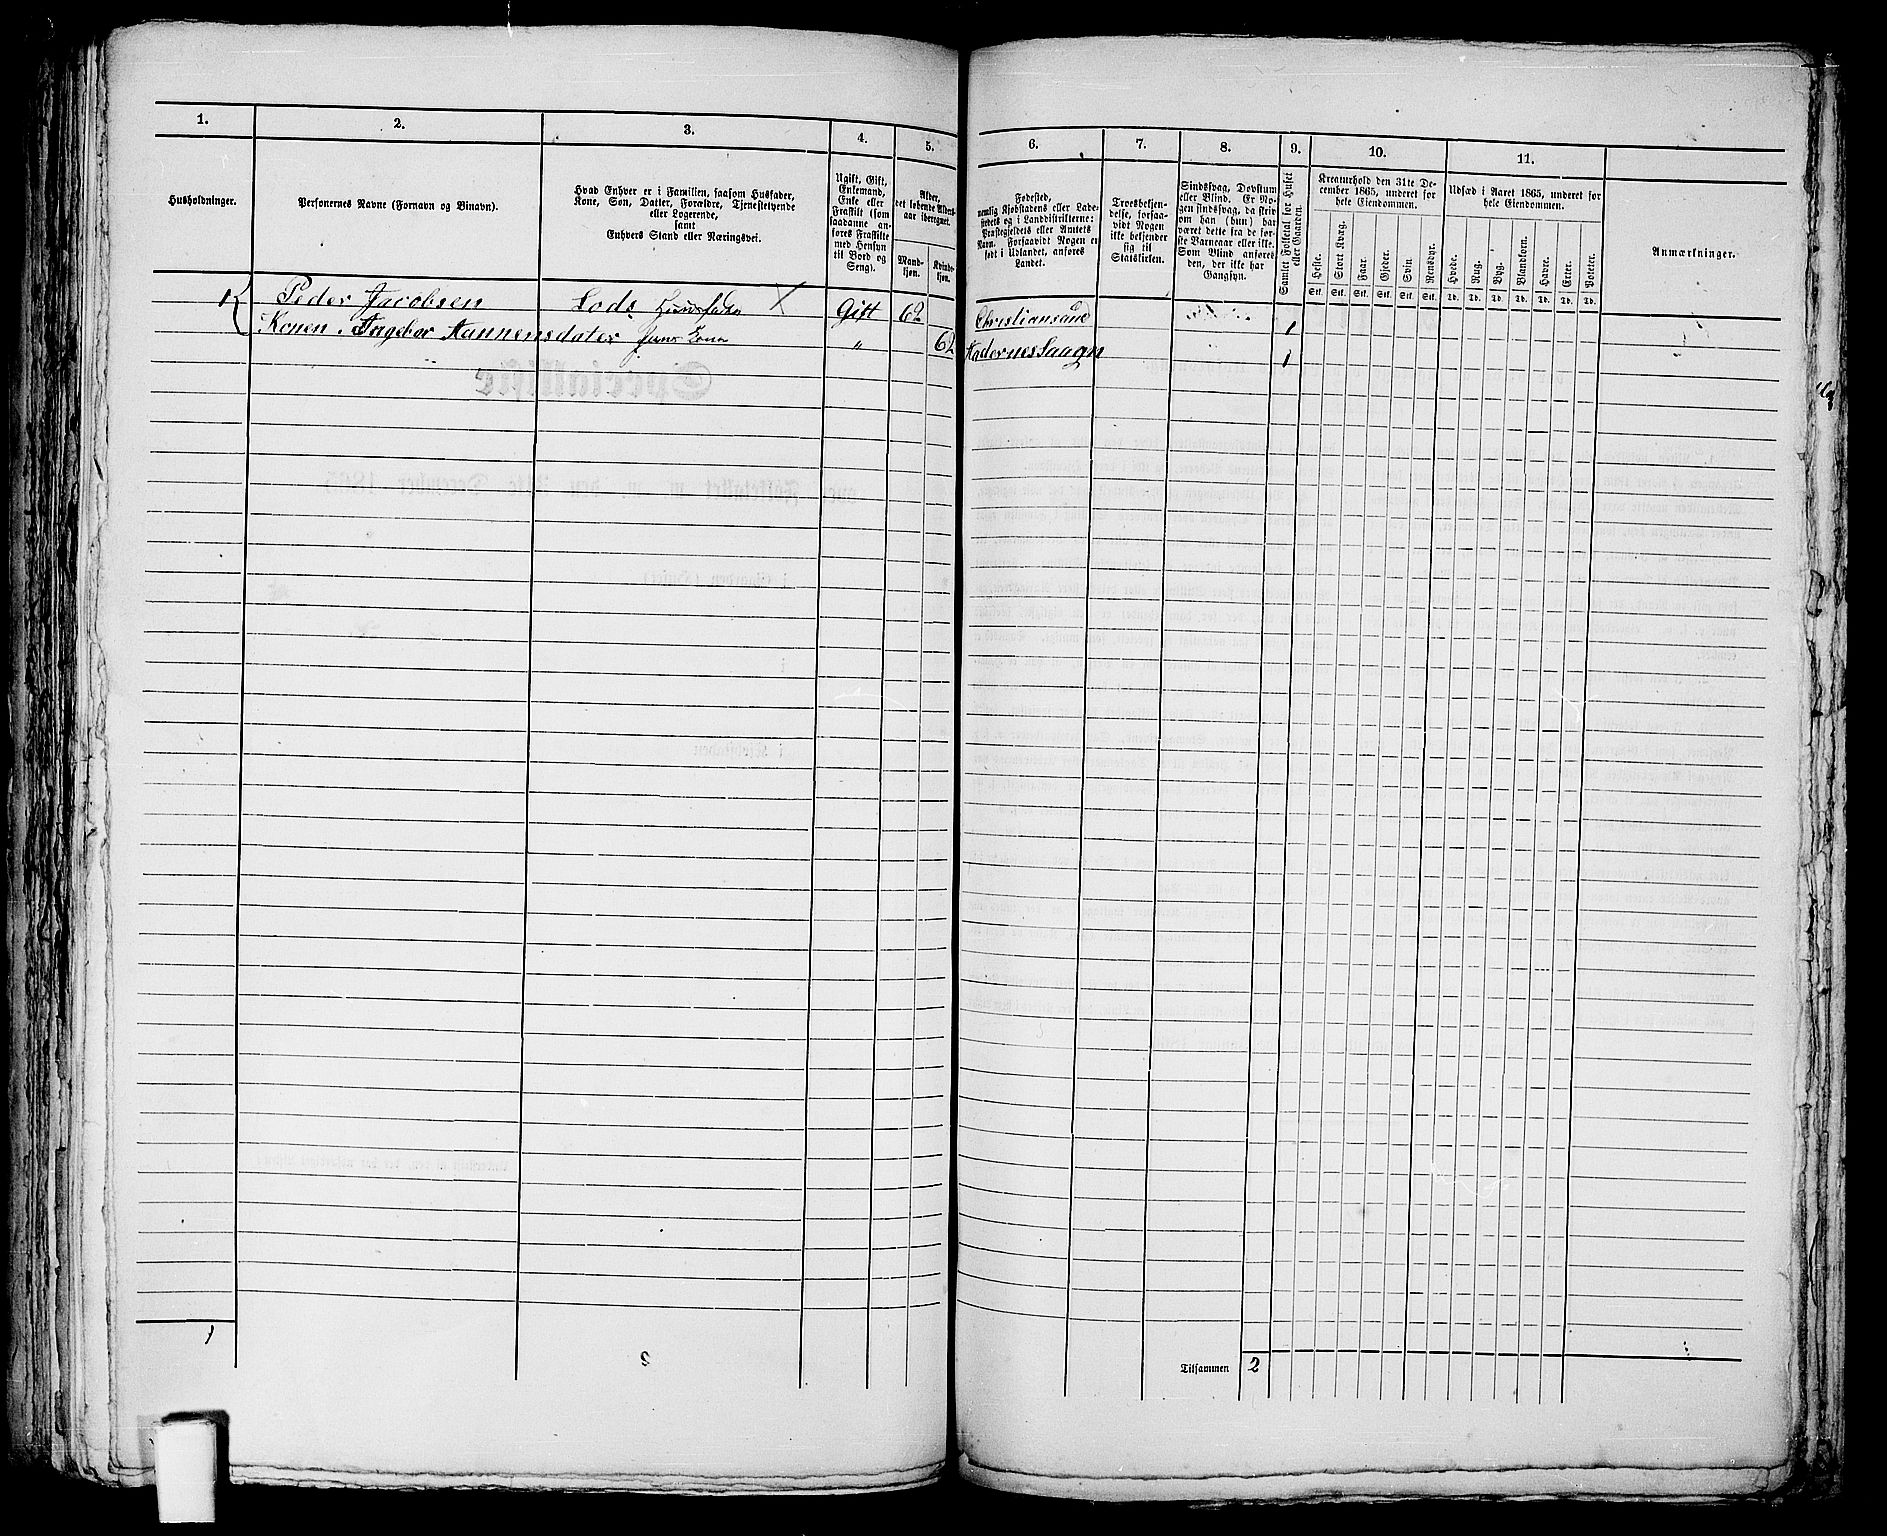 1.
2.
3.
4.
5.
6.
7.
8.
9.
10.
11.
Husholdninger.
Personernes Navne (Fornavn og Binavn).
Hvad Enhver er i Familien, saasom Husfader,
Kone, Søn, Datter, Forældre, Tjenestetyende
eller Logerende,
samt
Enhvers Stand eller Næringsvei.
Ugift, Gift,
Enkemand,
Enke eller
Fraskilt (som
saadanne an-
føres Fraskilte
med Hensyn
til Bord og
Seng).
Alder,
det løbende Alders-
aar iberegnet.
Mand-
kjøn.
Kvinde-
kjøn.
Fødested,
nemlig Kjøbstadens eller Lade-
stedets og i Landdistrikterne:
Præstegjeldets eller Amtets
Navn. Forsaavidt Nogen er
født i Udlandet, anføres
Landet.
Troesbekjen-
delse, forsaa-
vidt Nogen
ikke bekjender
sig til
Statskirken.
Sindssvag, Døvstum
eller Blind. Er No-
gen sindssvag, da skriv
om han (hun) har
været dette fra de før-
ste Barneaar eller ikke.
Som Blind anføres
den, der ikke har
Gangsyn.
Samlet Folketal for Huset
eller Gaarden.
Kreaturhold den 31te De-
cember 1865, underet for
hele Eiendommen.
Heste.
Stort Kvæg.
Faar.
Gjeder.
Svin.
Rensdyr.
Stk. Stk. Stk. Stk. Stk. Stk.
Udsæd i Aaret 1865, underet for
hele Eiendommen.
Hvede.
Rug.
Byg.
Blandkorn.
Havre.
Erter.
Poteter.
Td. Td. Td. Td. Td. Td. Td.
Anmærkninger.
Peder Jacobsen Lods Huusfader X Gift 62 Christiansand 1
Konen Ingebor Hannensdater Hans Kone „ 62 1
1
Tilsammen 2